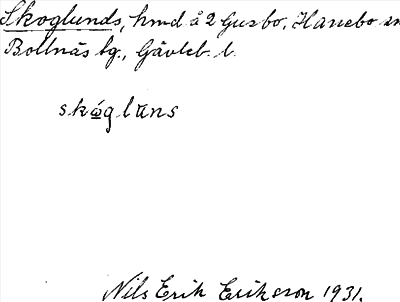 Skoglunds, hmd å 2 Gusbo, Hanebo sn
Bollnäs tg., Gävleb. l.
skóglūns
Nils Erik Erikcson 1931.